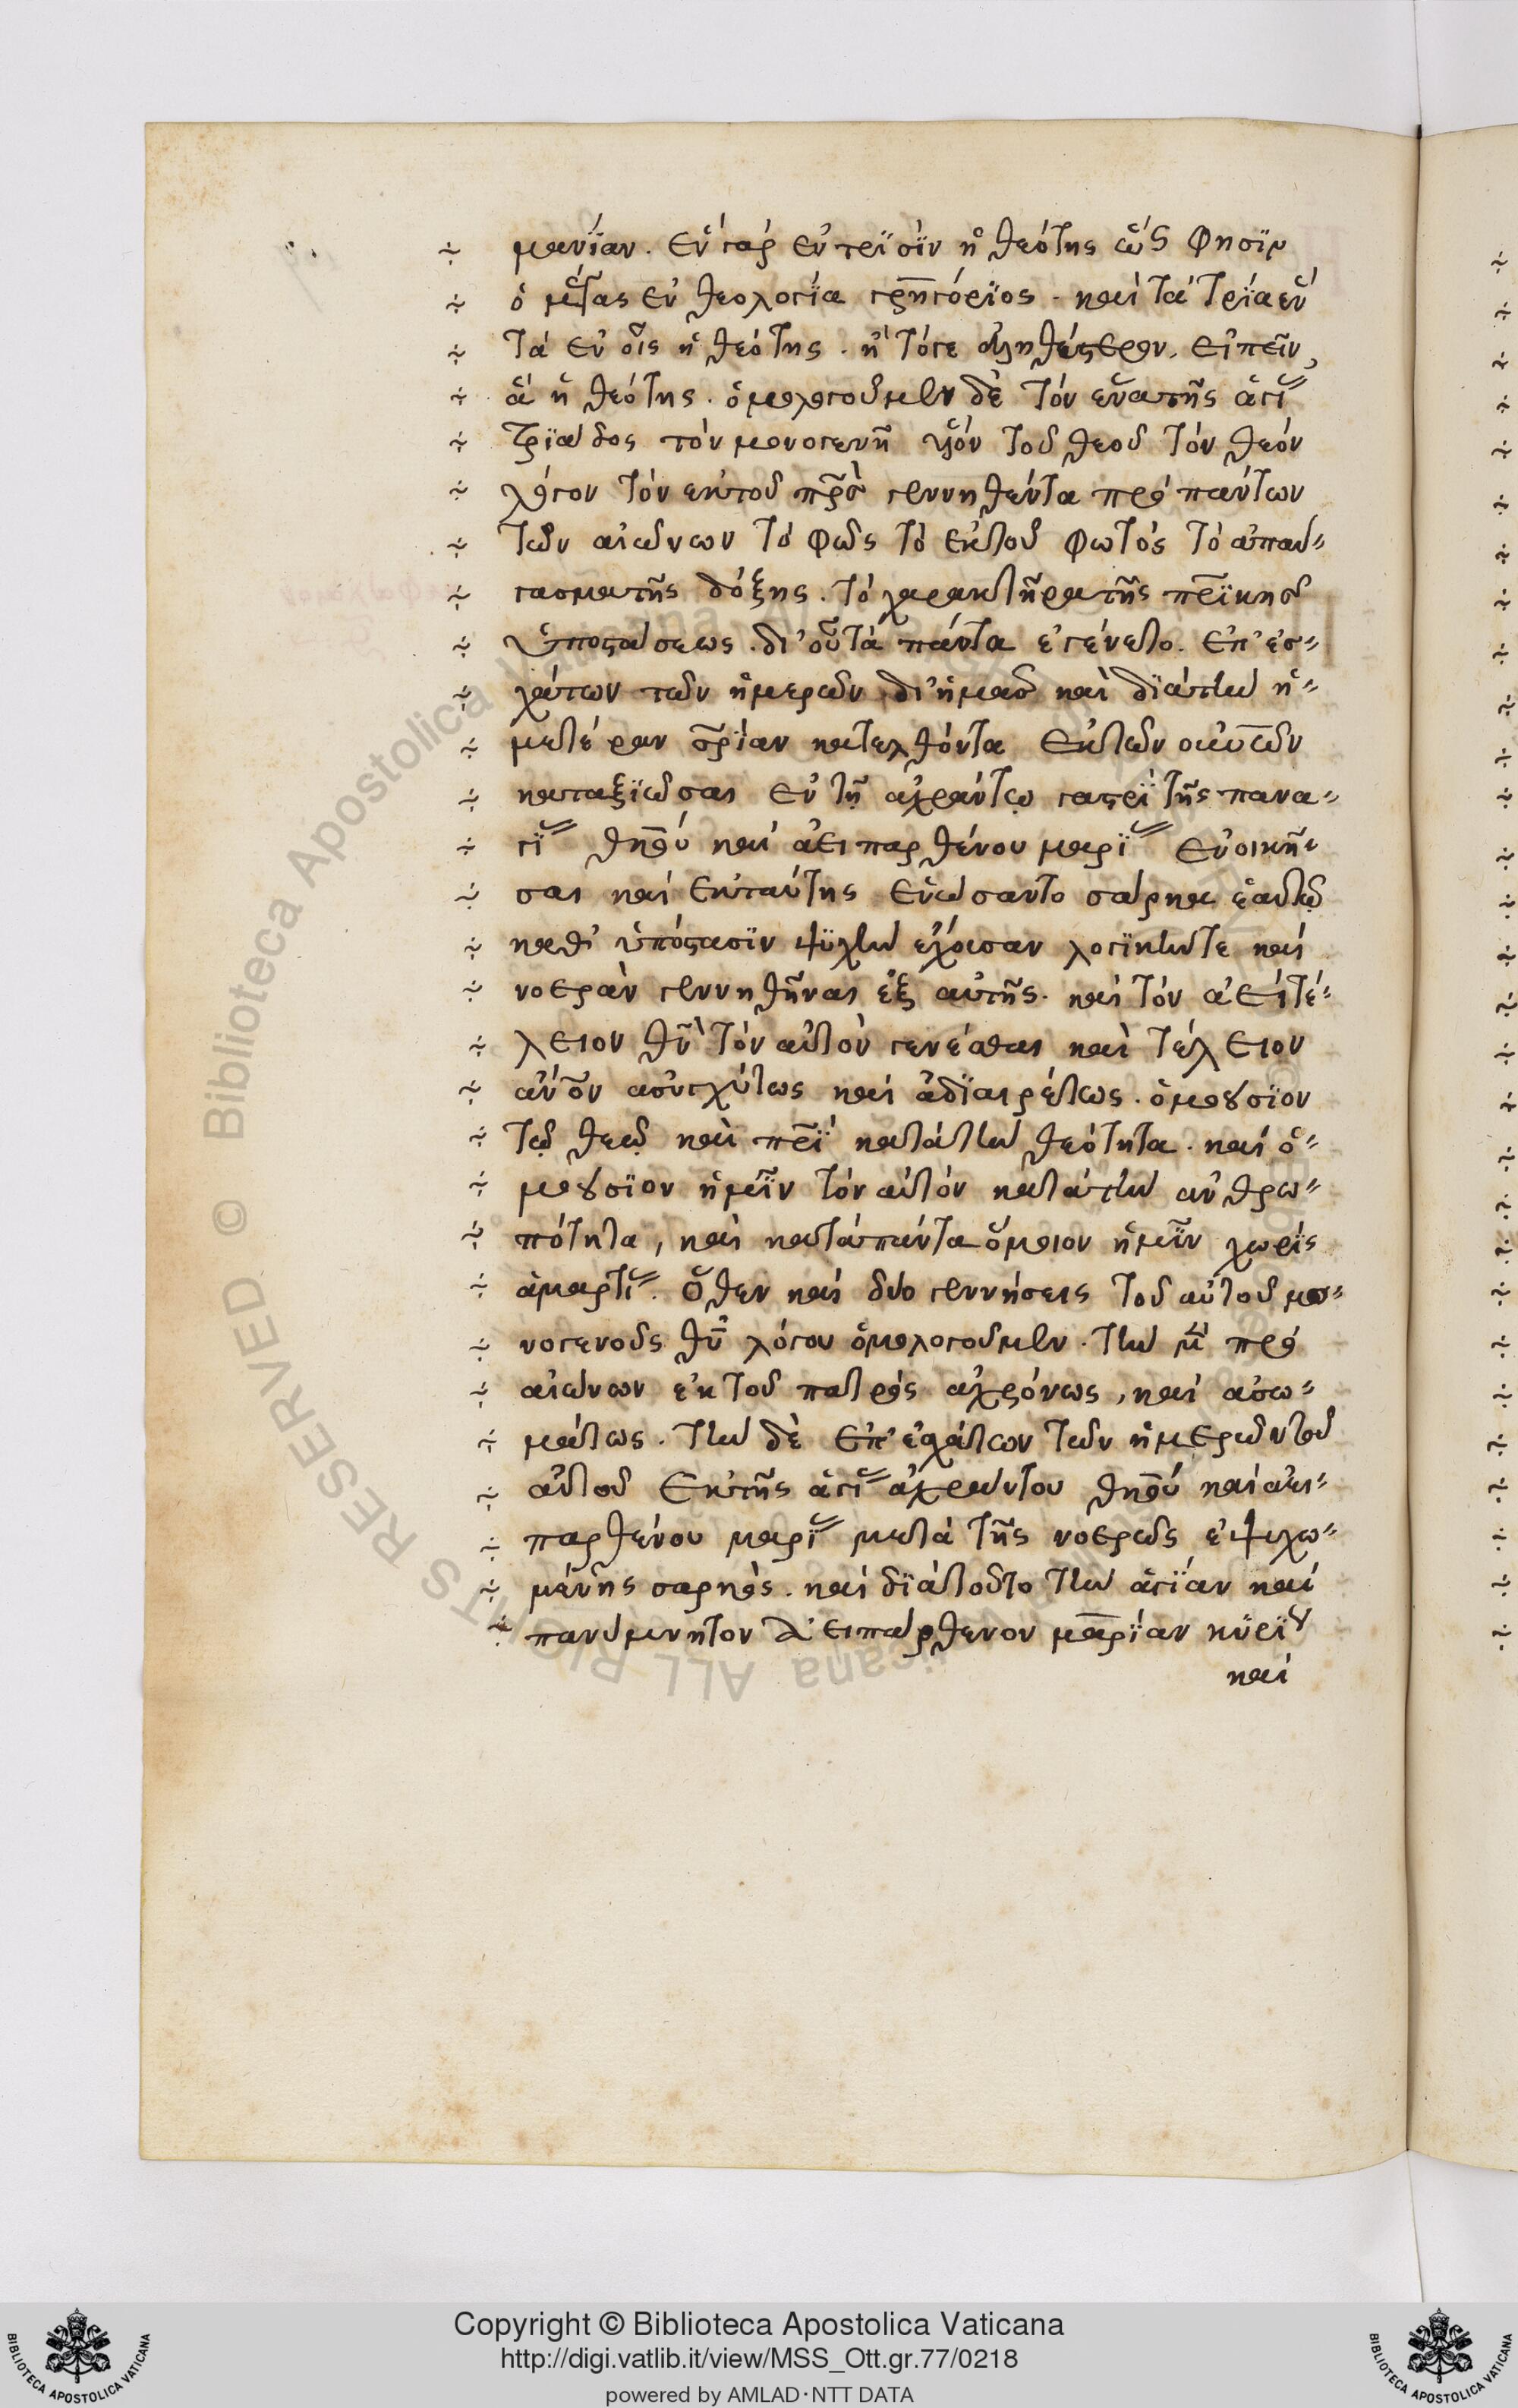 μανΐαν. ἓν γὰρ ἐν τρϊσϊν ἡ θεότης ὥς φησϊν
ὁ μέγας ἐν θεολογία γρηγόρϊος. καὶ τὰ τρία ἓν
τὰ ἐν οἷς ἡ θεότης. ἢ τόγε ἀληθέστερον, εἰπεῖν,
ἃ ἡ θεότης. ὁμολογοῦμεν δὲ τὸν ἕνα τῆς ἁγί
τρϊάδος τὸν μονογενῆ υἱὸν τοῦ θεοῦ τὸν θεὸν
λόγον τὸν ἐκ τοῦ πρσ γεννηθέντα πρὸ πάντων
τῶν αἰώνων τὸ φῶς τὸ ἐκ τοῦ φωτὸς τὸ ἀπαύ-
γασμα τῆς δόξης. τὸ χαρακτῆρα τῆς πρϊκῆσ
ὑποστάσεως. δι' οὗ τὰ πάντα ἐγένετο. ἐπ' ἐσ-
χάτων τῶν ἡμερῶν δι' ἡμᾶσ καὶ δϊὰ τὴν ἡ-
μετέραν σρΐαν κατελθόντα ἐκ τῶν οὐνῶν
καταξϊώσαι ἐν τῇ ἀχράντῳ γαστρὶ τῆς πανα-
γϊ θηκου καὶ ἀειπαρθένου μαρϊ ἐνοικῆ-
σαι καὶ ἐκ ταύτης ἑνώσαντο σάρκα ἑαυτῷ
καθ' ὑπόστασϊν ψϋχὴν ἔχουσαν λογϊκήν τε καὶ
νοερὰν γεννηθῆναι ἐξ αὐτῆς. καὶ τὸν ἀεὶ τέ-
λειον θν τὸν αὐτὸν γενέσθαι καὶ τέλειον
ἄνον ἀσυγχύτως καὶ ἀδϊαιρέτως. ὁμοούσϊον
τῷ θεῷ καὶ πρϊ κατὰ τὴν θεότητα. καὶ ὁ-
μοούσϊον ἡμῖν τὸν αὐτὸν κατὰ τὴν ἀνθρω-
πότητα, καὶ κατὰ πάντα ὅμοιον ἡμῖν χωρϊς
ἁμαρτϊ. ὅθεν καὶ δύο γεννήσεις τοῦ αὐτοῦ μο-
νογενοῦς θυ λόγου ὁμολογοῦμεν. τὴν μ πρὸ
αἰώνων ἐκ τοῦ πατρὸς ἀχρόνως, καὶ ἀσω-
μάτως. τὴν δὲ ἐπ' ἐσχάτων τῶν ἡμερῶν τοῦ
αὐτοῦ ἐκ τῆς ἁγϊ ἀχράντου θηκου καὶ ἀει-
παρθένου μαρϊ μετὰ τῆς νοερῶς ἐψυχω-
μένης σαρκὸς. καὶ δϊὰ τοῦτο τὴν ἁγΐαν καὶ
πανύμνητον ἀειπάρθενον μαρΐαν κϋρϊ
καὶ
Copyright © Biblioteca Apostolica Vaticana
http://digi.vatlib.it/view/MSS_Ott.gr.77/0218
powered by AMLAD·NTT DATA